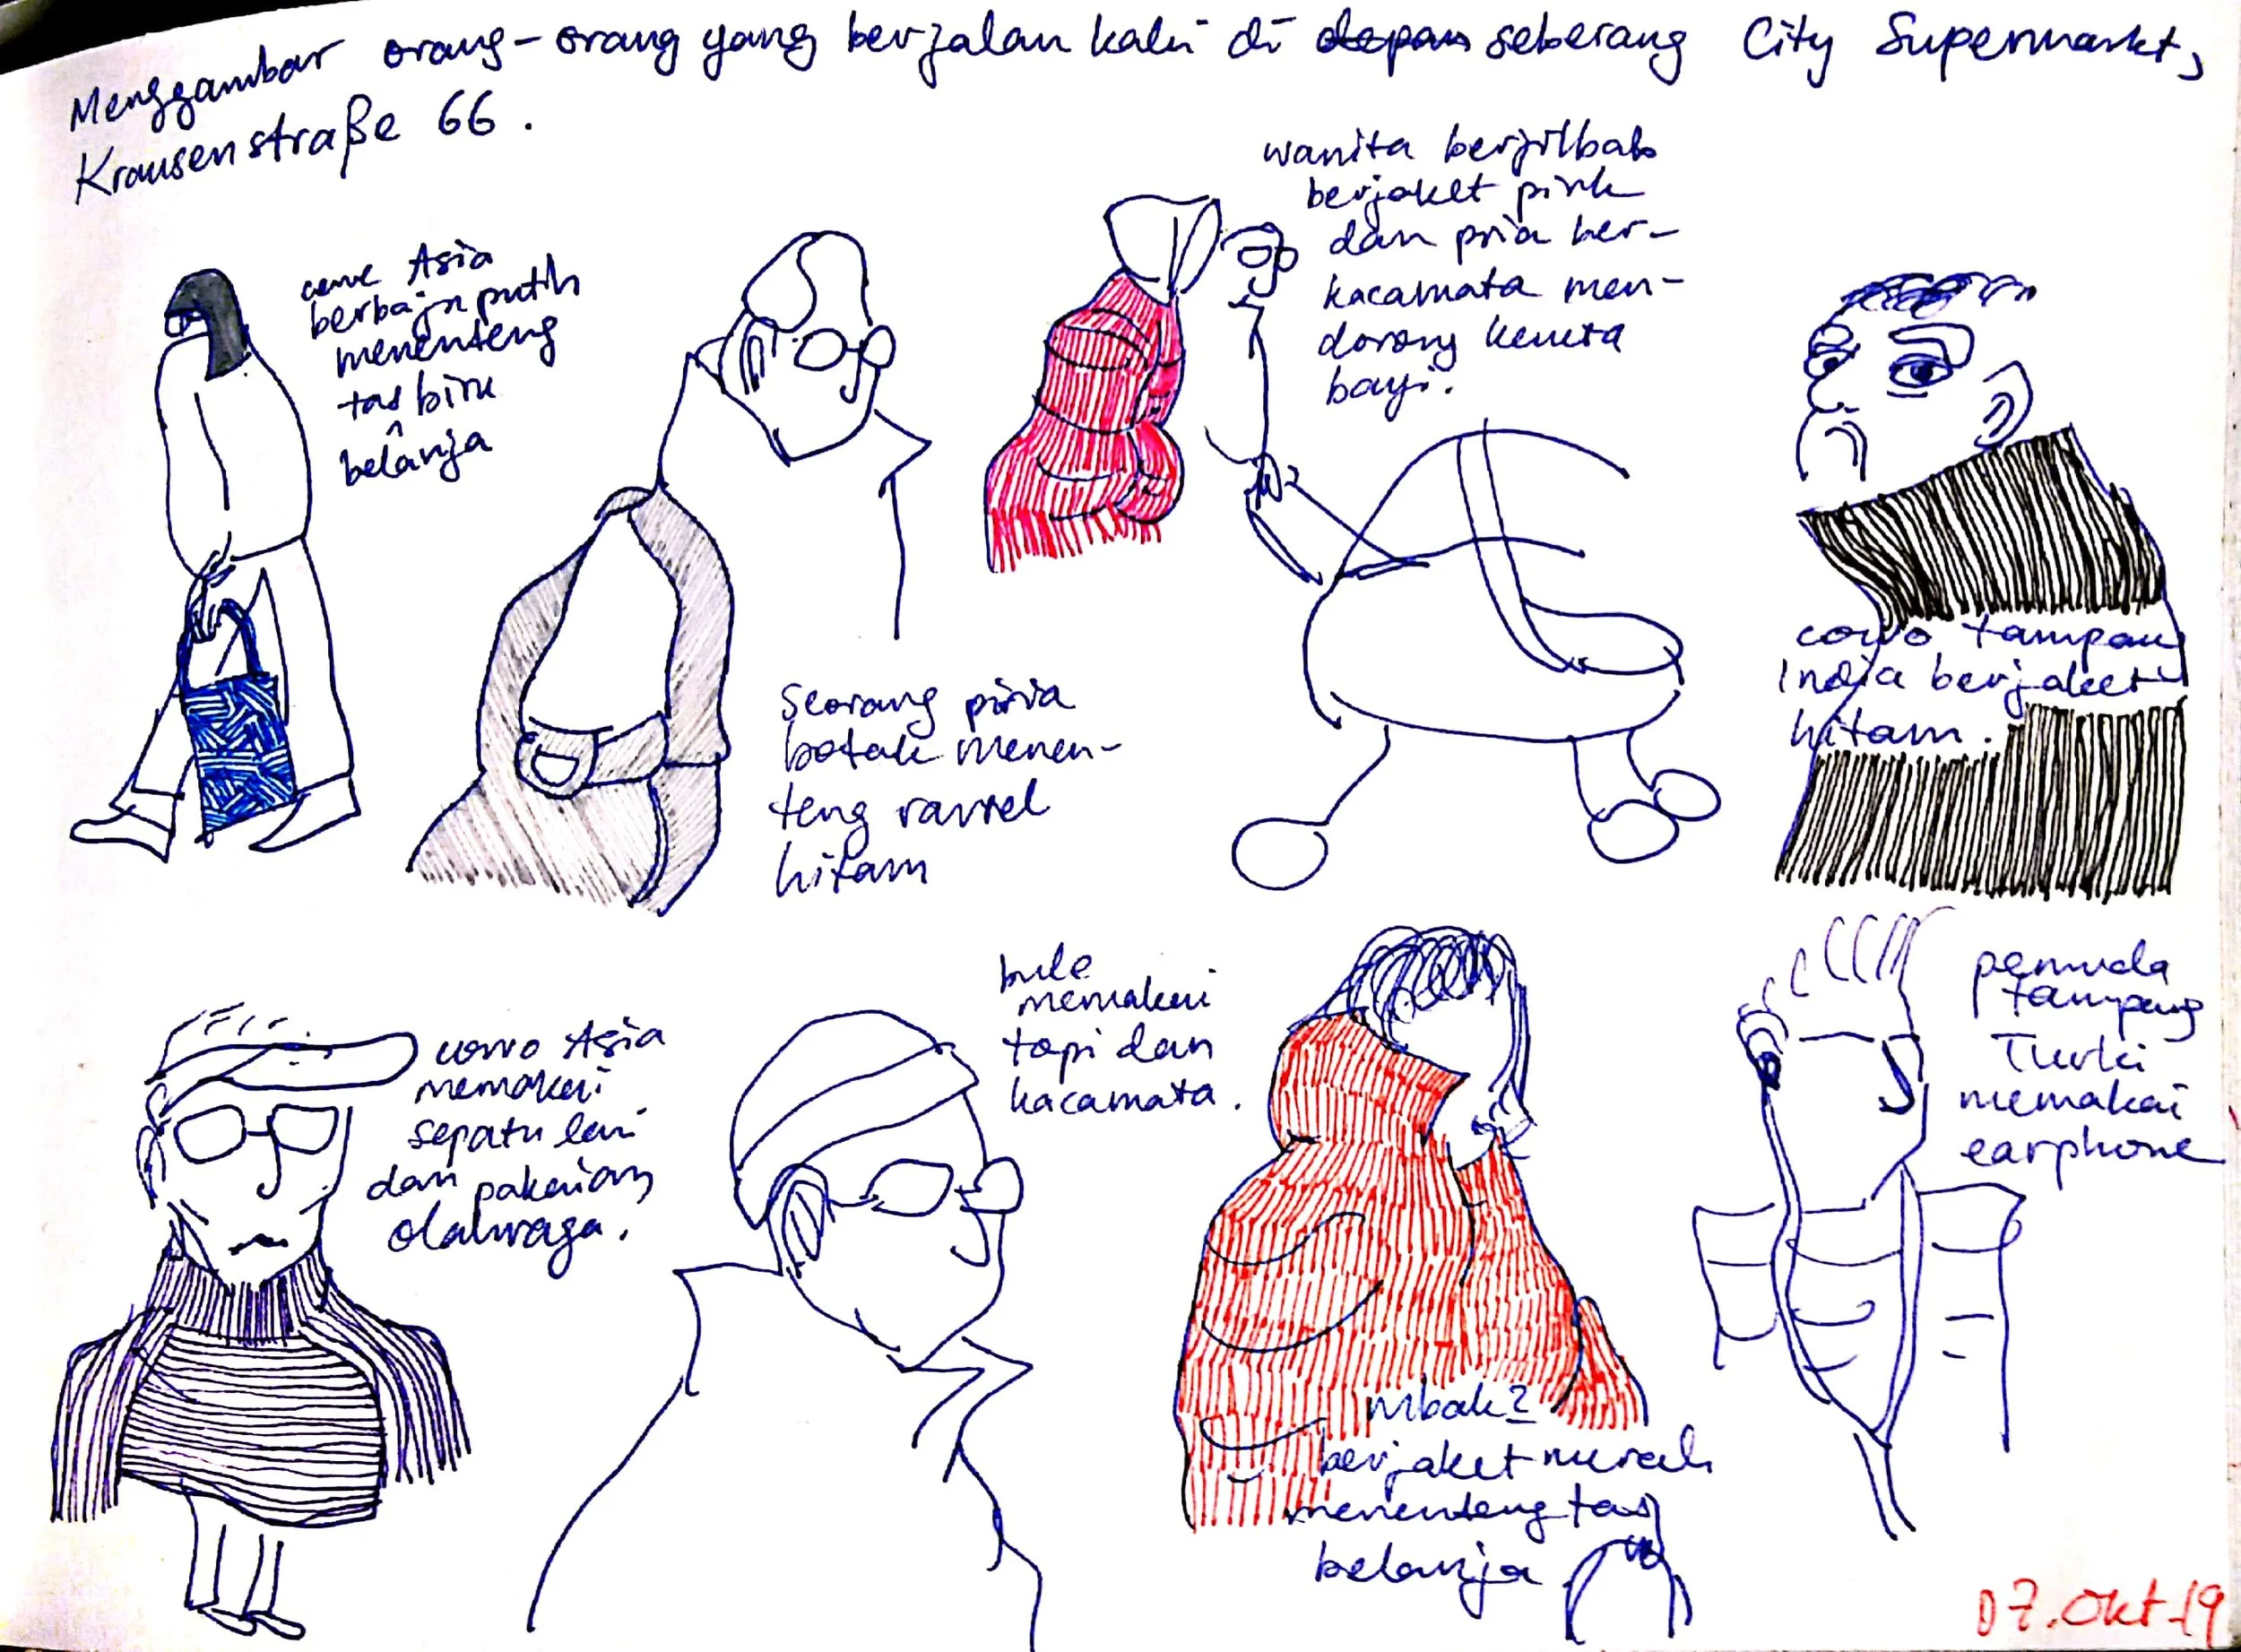 Menggambar orang-orang yang berjalan kaki di depan seberang City Supermarkt,
Krausenstraße 66.
cewe Asia
berbaju putih
menenteng
tas biru
^
belanja
Seorang piria
botak menen-
teng ransel
hitam
wanita berjilbab
berjaket pink
dan pria ber-
kacamata men-
dorong kereta
bayi.
cowo tampan
India berjaket
hitam.
cowo Asia
memakai
sepatu lari
dan pakaian
olahraga.
bule
memakai
topi dan
kacamata.
mbak2
berjaket merah
menenteng tas
belanja
pemuda
tampang
Turki
memakai
earphone
07.Okt.19